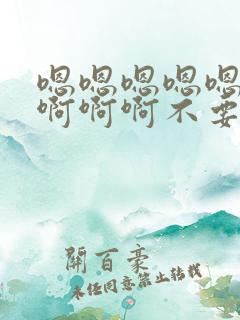 嗯嗯嗯嗯嗯
啊啊啊不要
開百豪
未经同意禁止转载